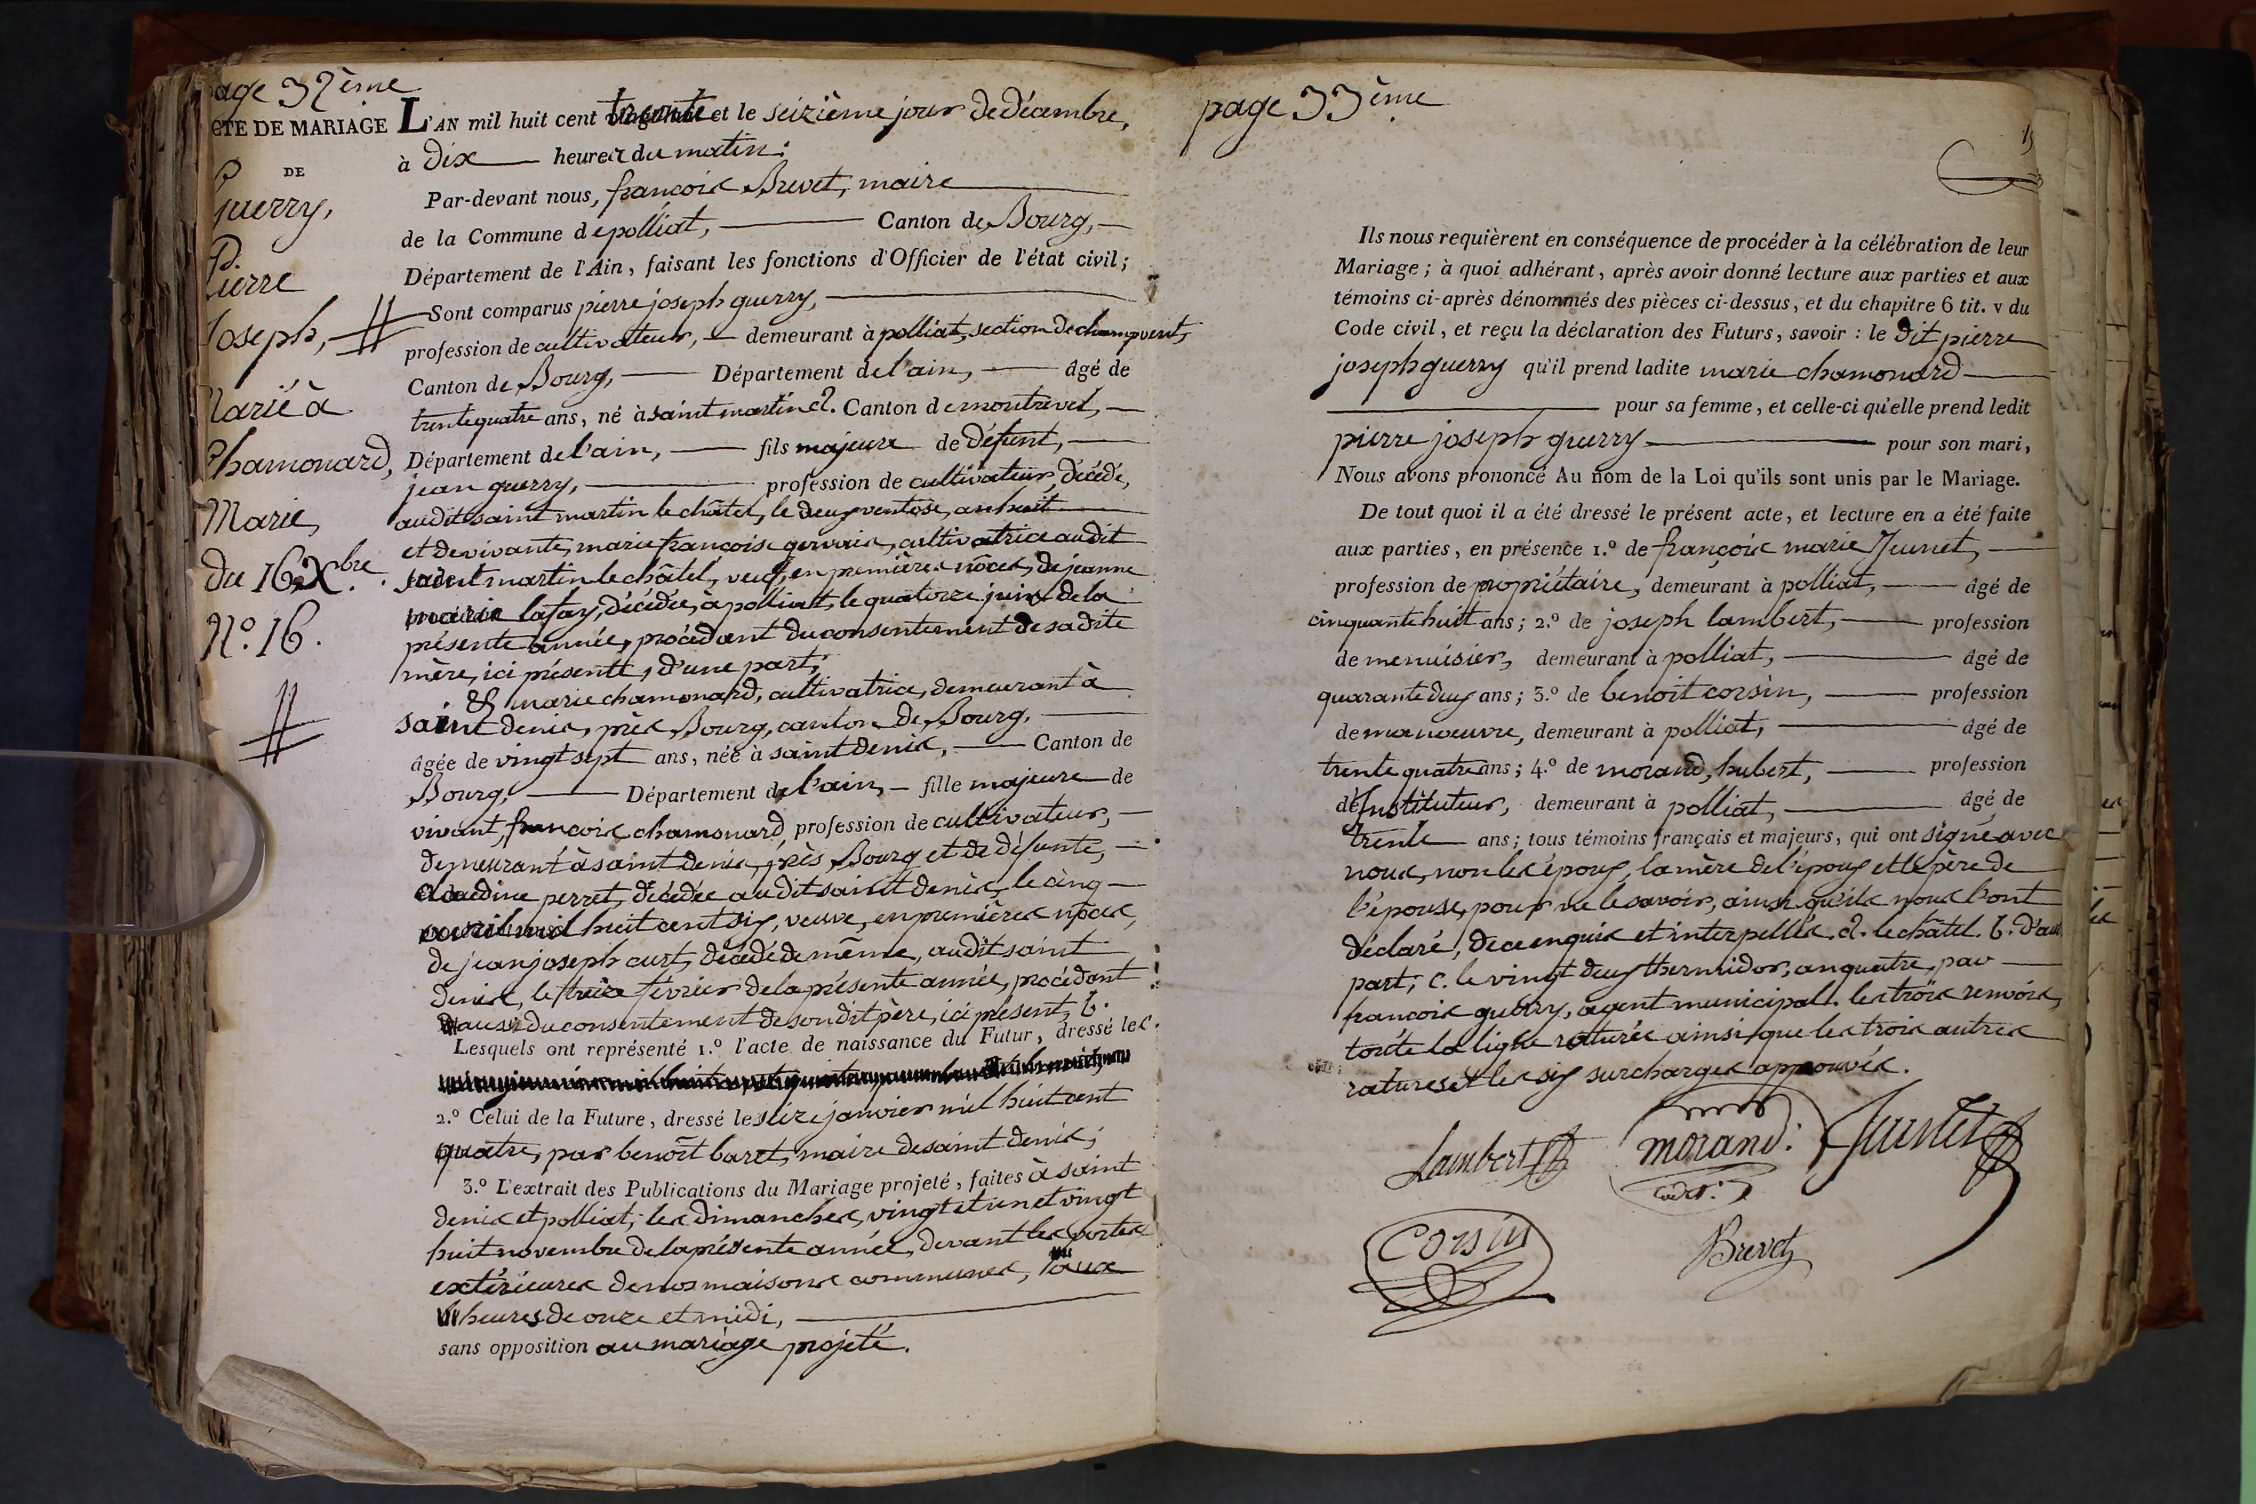 page 32ème
ACTE DE MARIAGE
DE
Guerry,
Pierre
Joseph,
Marié à
Chamonard,
Marie,
du 16 Xbre.
N.º 16.
L'AN mil huit cent trente et le seizième jour de décembre,
à dix heures du matin.
Par-devant nous, françois Brevet, maire
de la Commune de polliat, Canton de Bourg,
Département de l'Ain, faisant les fonctions d'Officier de l'état civil;
Sont comparus pierre joseph guerry,
profession de cultivateur, demeurant à polliat, section de champvent,
Canton de Bourg, Département de l'ain, âgé de
trente quatre ans, né à saint martin a. Canton de montrevel,
Département de l'ain, fils majeur de défunt,
jean guerry, profession de cultivateur, décédé,
audit saint martin le châtel, le deux ventose, an huit
et de vivante, marie françoise gervais, cultivatrice audit
saint martin le châtel, veuf, en premières nôces, de jeanne
marie lafay, décédée, à polliat, le quatorze juin de la
présente année, procédant du consentement de sadite
mère, ici présente, d'une part;
& marie chamonard, cultivatrice, demeurant à
saint denis, près Bourg, canton de Bourg,
âgée de vingt sept ans, née à saint denis, Canton de
Bourg, Département de l'ain, fille majeure de
vivant, francois chamonard, profession de cultivateur,
demeurant à saint denis, près Bourg et de défunte,
claudine perret, décédée audit saint denis, le cinq
avril mil huit cent six, veuve, en premières nôces,
de jean joseph curt, décédé de même, audit saint
denis, le treize février de la présente année, procédant
aussi du consentement de son dit père, ici présent, b.
Lesquels ont représenté 1.º l'acte de naissance du Futur, dressé le c.
2.º Celui de la Future, dressé le seize janvier mil huit cent
quatre, par benoît baret, maire de saint denis;
3.º L'extrait des Publications du Mariage projeté, faites à saint
denis et polliat, les dimanches, vingt et un et vingt
huit novembre de la présente année, devant les portes
extérieures de nos maisons communes, aux
heures de onze et midi,
sans opposition au mariage projeté.
page 33ème
Ils nous requièrent en conséquence de procéder à la célébration de leur
Mariage; à quoi adhérant, après avoir donné lecture aux parties et aux
témoins ci-après dénommés des pièces ci-dessus, et du chapitre 6 tit. v du
Code civil, et reçu la déclaration des Futurs, savoir: le dit pierre
joseph guerry qu'il prend ladite marie chamonard
pour sa femme, et celle-ci qu'elle prend ledit
pierre joseph guerry pour son mari,
Nous avons prononcé Au nom de la Loi qu'ils sont unis par le Mariage.
De tout quoi il a été dressé le présent acte, et lecture en a été faite
aux parties, en présence 1.º de françois marie Jeunet,
profession de propriétaire, demeurant à polliat, âgé de
cinquante huit ans; 2.º de joseph lambert, profession
de menuisier, demeurant à polliat, âgé de
quarante deux ans; 3.º de benoit corsin, profession
de manoeuvre, demeurant à polliat, âgé de
trente quatre ans; 4.º de morand, hubert, profession
d'Instituteur, demeurant à polliat, âgé de
trente ans; tous témoins français et majeurs, qui ont signé avec
nous, non les époux, la mère de l'époux et le père de
l'épouse, pour ne le savoir, ainsi qu'ils nous l'ont
déclaré, de ce enquis et interpellés. a. le châtel. b. d'autre
part; c. le vingt deux thermidor, an quatre, par
francois guerry, agent municipal. les trois renvois,
toute la ligne raturée ainsi que les trois autres
ratures et les six surcharges approuvés.
Lambert
morand.
Jeunet
Corsin
Brevet